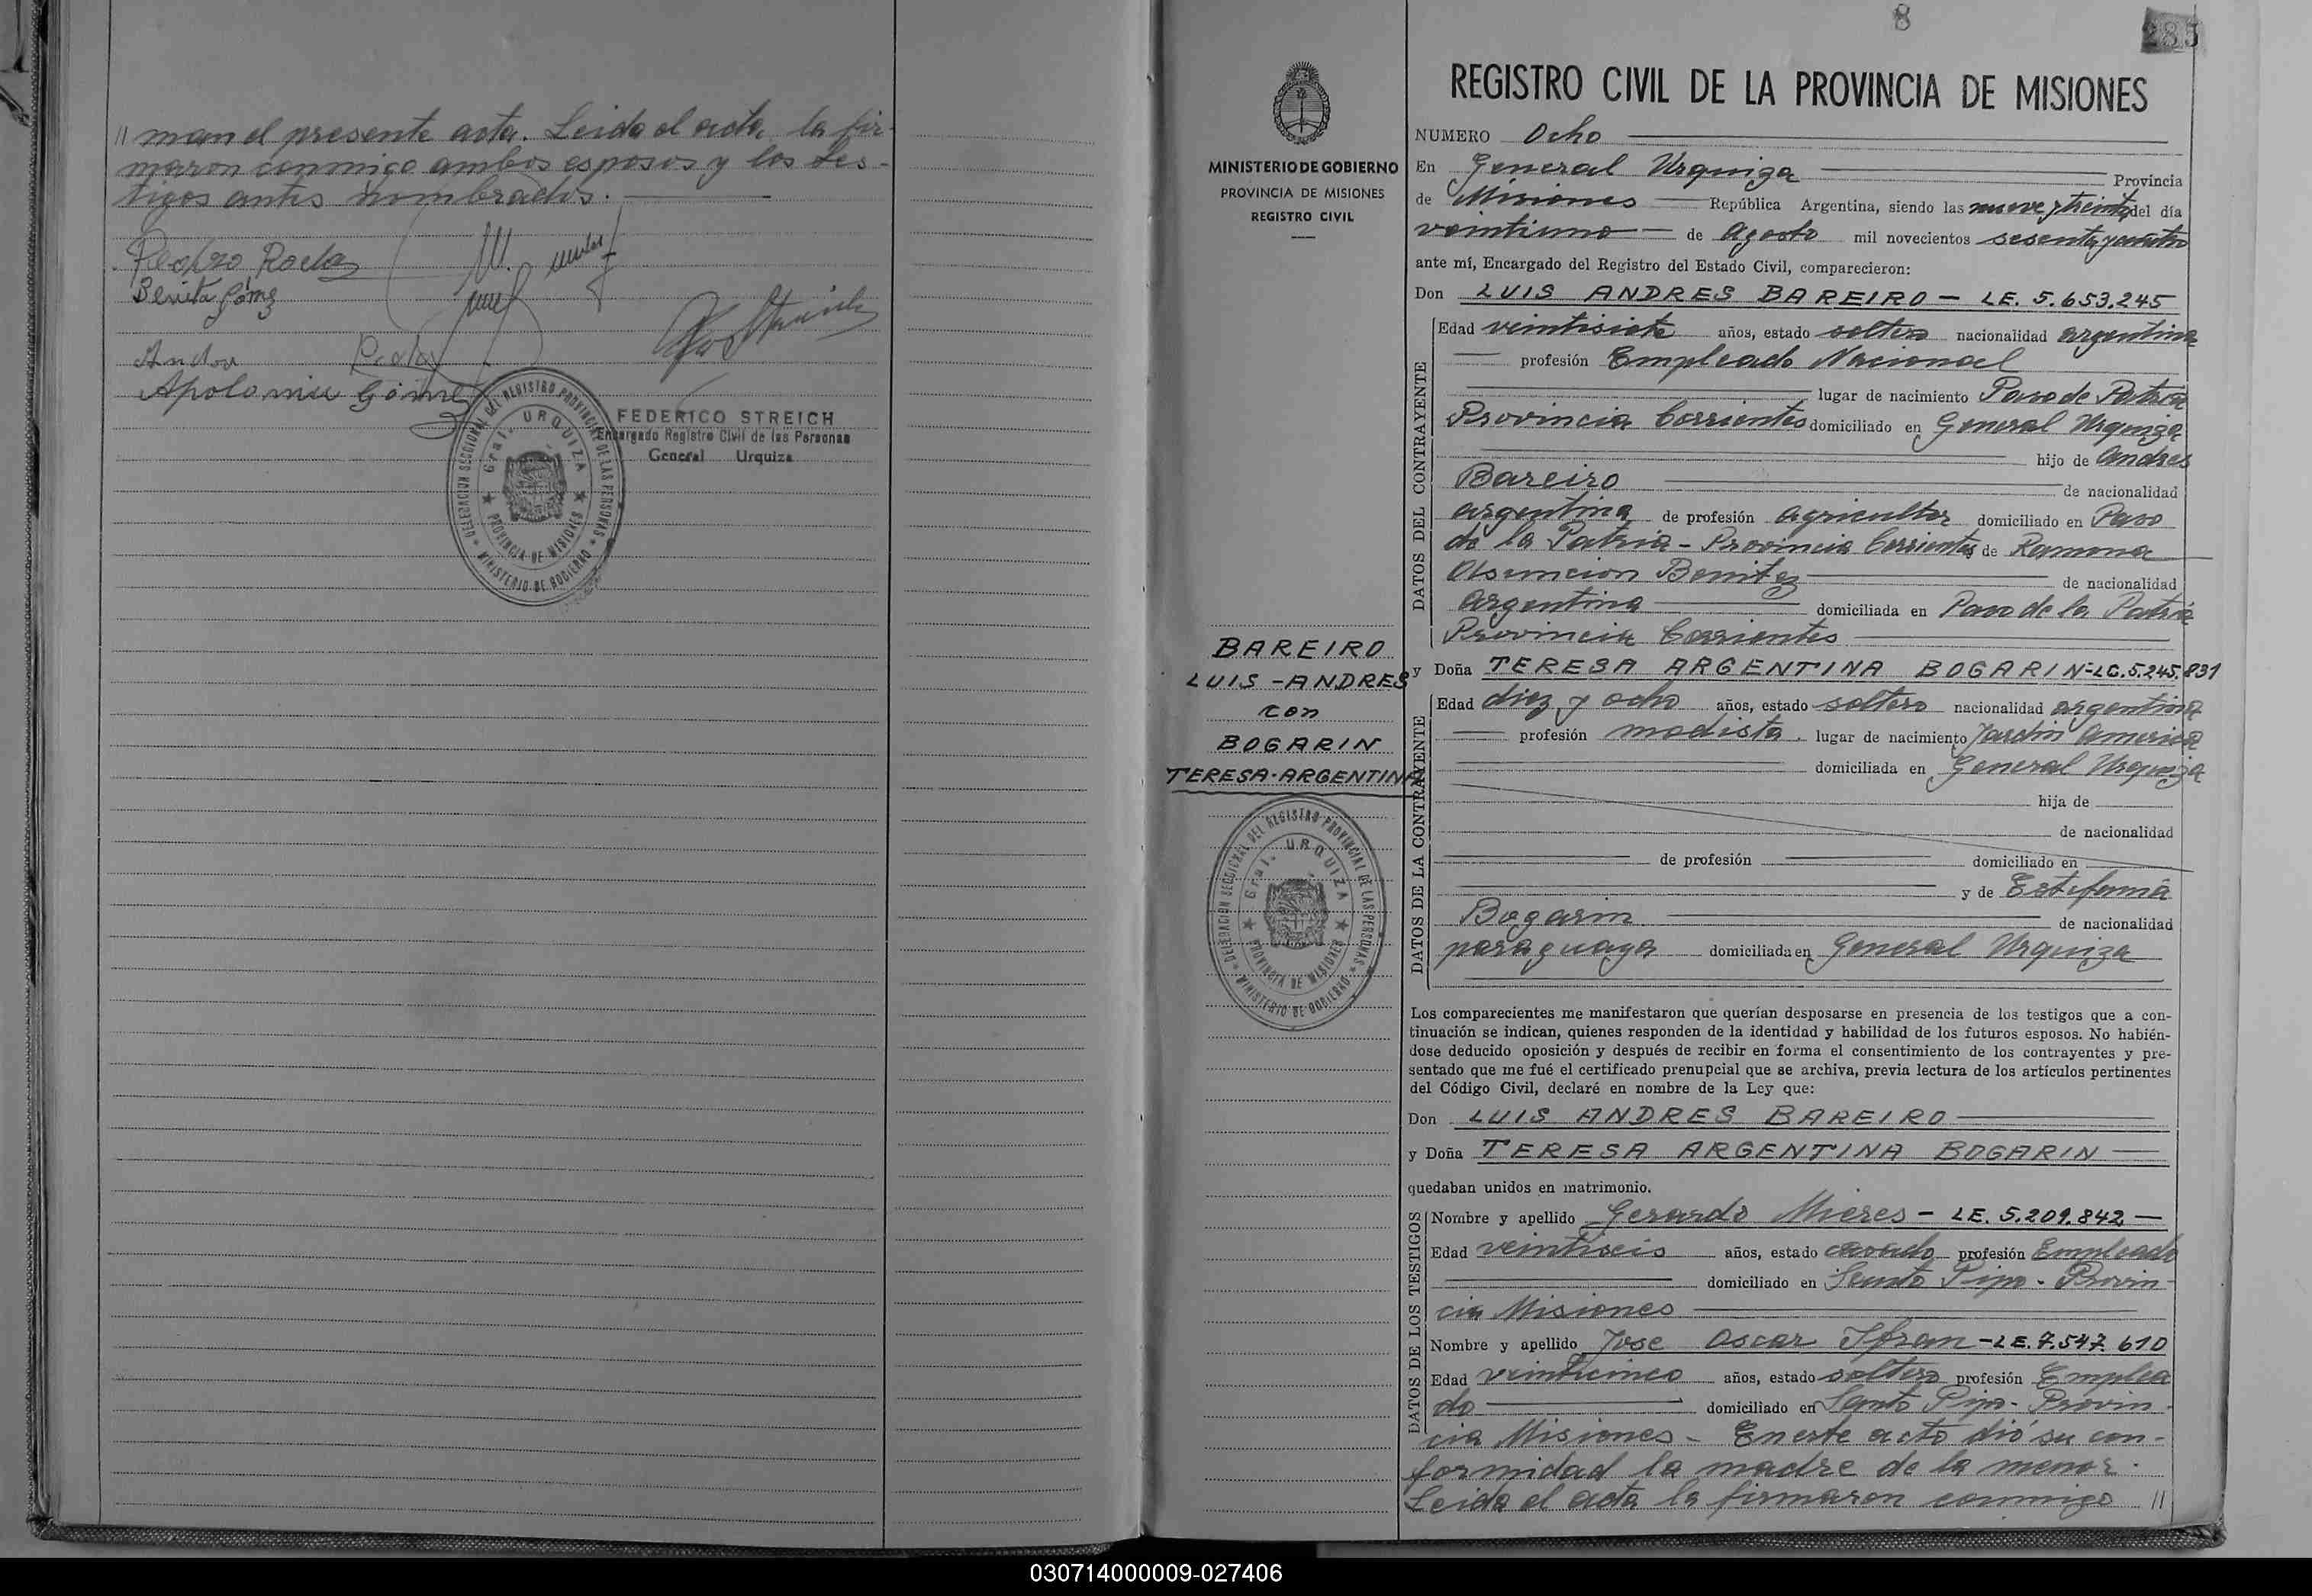 // man el presente acta. Leida el acta, la fir-
maron conmigo ambos esposos y los tes-
tigos antes nombrados.
Pedro Roda
Benita Gómz
Apolonia Góme
FEDERICO STREICH
Encargado Registro Civil de las Personas
General Urquiza
DELEGACION SECCIONAL DEL REGISTRO PROVINCIAL DE LAS PERSONAS
★ MINISTERIO DE GOBIERNO ★
Gral. URQUIZA
★ PROVINCIA DE MISIONES ★
8
285
MINISTERIO DE GOBIERNO
PROVINCIA DE MISIONES
REGISTRO CIVIL
BAREIRO
LUIS - ANDRES
con
BOGARIN
TERESA - ARGENTINA
DELEGACION SECCIONAL DEL REGISTRO PROVINCIAL DE LAS PERSONAS
★ MINISTERIO DE GOBIERNO ★
Gral. URQUIZA
★ PROVINCIA DE MISIONES ★
REGISTRO CIVIL DE LA PROVINCIA DE MISIONES
NUMERO Ocho
En General Urquiza Provincia
de Misiones República Argentina, siendo las nueve y treinta del día
veintiuno de Agosto mil novecientos sesenta y cuatro
ante mí, Encargado del Registro del Estado Civil, comparecieron:
Don LUIS ANDRES BAREIRO - LE. 5.653.245
DATOS DEL CONTRAYENTE
Edad veintisiete años, estado soltero nacionalidad argentina
profesión Empleado Nacional
lugar de nacimiento Paso de Patria
Provincia Corrientes domiciliado en General Urquiza
hijo de Andres
Bareiro de nacionalidad
argentina de profesión agricultor domiciliado en Paso
de la Patria - Provincia Corrientes de Ramona
Asuncion Benitez de nacionalidad
Argentina domiciliada en Paso de la Patria
Provincia Corrientes
y Doña TERESA ARGENTINA BOGARIN - LC. 5.245.831
DATOS DE LA CONTRAYENTE
Edad diez y ocho años, estado soltero nacionalidad argentina
profesión modista lugar de nacimiento Jardin America
domiciliada en General Urquiza
hija de
de nacionalidad
de profesión domiciliado en
y de Estefania
Bogarin de nacionalidad
paraguaya domiciliada en General Urquiza
Los comparecientes me manifestaron que querían desposarse en presencia de los testigos que a con-
tinuación se indican, quienes responden de la identidad y habilidad de los futuros esposos. No habién-
dose deducido oposición y después de recibir en forma el consentimiento de los contrayentes y pre-
sentado que me fué el certificado prenupcial que se archiva, previa lectura de los artículos pertinentes
del Código Civil, declaré en nombre de la Ley que:
Don LUIS ANDRES BAREIRO
y Doña TERESA ARGENTINA BOGARIN
quedaban unidos en matrimonio.
DATOS DE LOS TESTIGOS
Nombre y apellido Gerardo Mieres - LE. 5.209.842
Edad veintiseis años, estado casado profesión Empleado
domiciliado en Santo Pipo - Provin-
cia Misiones
Nombre y apellido Jose Oscar Ifran - LE. 7.547.610
Edad veinticinco años, estado soltero profesión Emplea
do domiciliado en Santo Pipo - Provin-
cia Misiones - En este acto dió su con-
formidad la madre de la menor.
Leida el acta la firmaron conmigo //
030714000009-027406